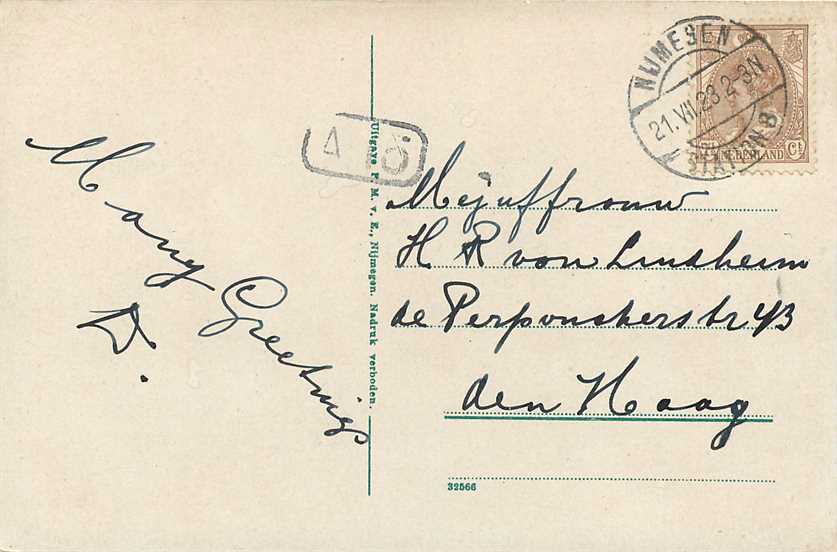 NIJMEGEN
21.VII.23 2-3N
STATION 8
NEDERLAND Ct
Many Greetings
D.
Uitgave F. M. v. E., Nijmegen. Nadruk verboden.
Mejuffrouw
H R von Linsheim
de Perponcherstr 43
den Haag
32566